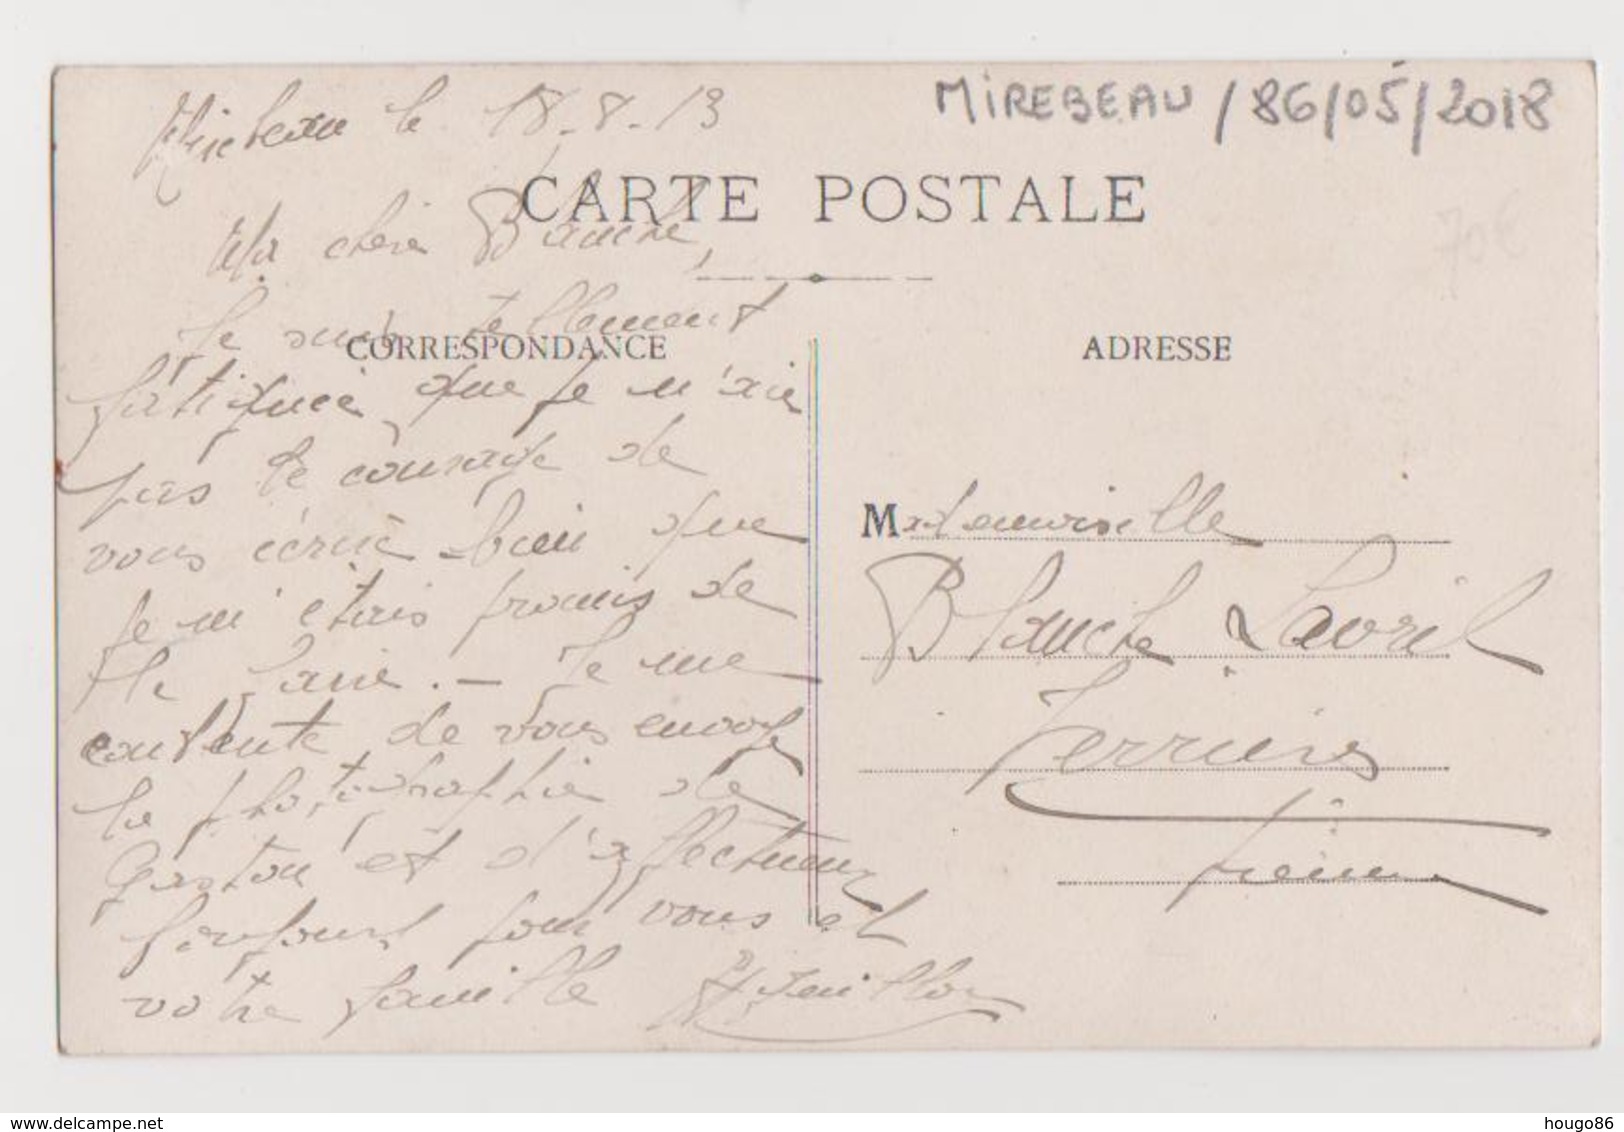 Mirebeau le 18-8-13
MIREBEAU / 86/05/2018
CARTE POSTALE
70€
Ma chère Blanche,
CORRESPONDANCE
ADRESSE
Je suis tellement
fatiguée, que je n'aie
pas le courage de
vous écrire bien que
je m'étais promis de
le faire. - Je me
contente, de vous envoyer
la photographie de
Gaston et d'affectueux
bonjours pour vous et
votre famille
Mademoiselle
Blanche Lavril
Ferrières
delcampe.net
hougo86